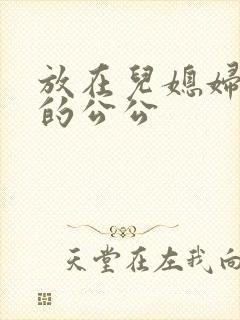 放在兒媳婦
的公公
天堂在左我向